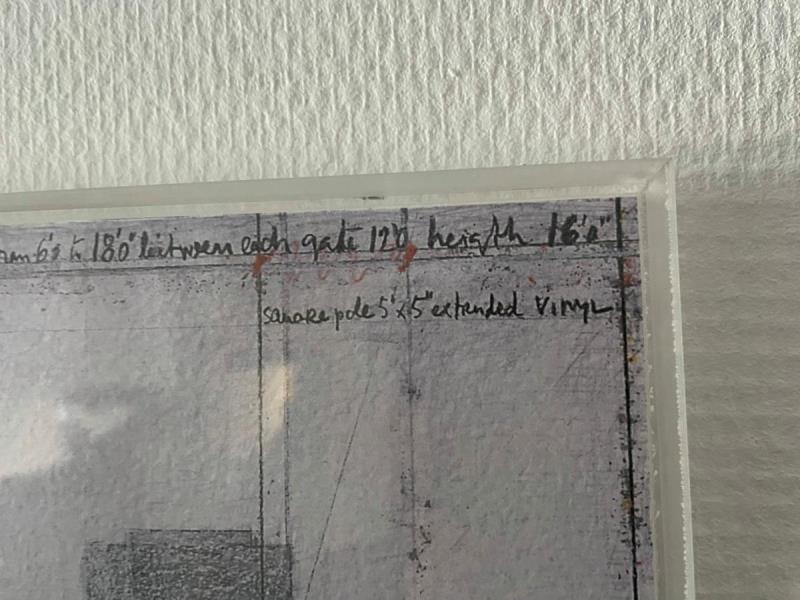 6'0 to 18'0" between each gate 12'0 heigth 16'0"
square pole 5"x5" extended VINYL